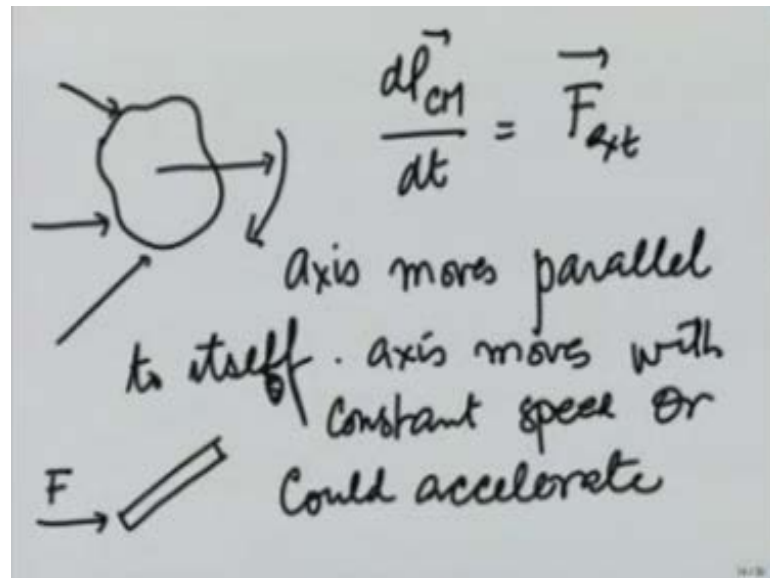 dP_CM/dt = F_ext
axis moves parallel
to itself. axis moves with
constant speed or
could accelerate
F